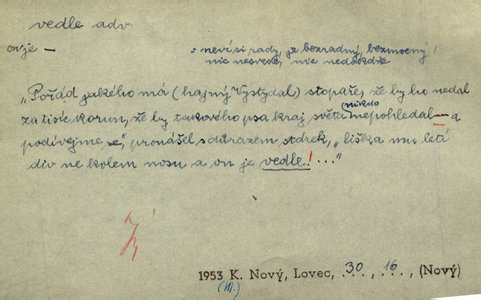 vedle adv.
on je — = neví si rady, je bezradný, bezmocný,
nic nesvede, nic nedokáže
„Pořád jakého má (hajný Vystydal) stopaře, že by ho nedal
za tisíc korun, že by takového psa kraj světa nikdo nepohledal — a
podívejme se," pronášel s důrazem stárek, „liška mu letí
div ne kolem nosu a on je vedle! ..."
1953 K. Nový, Lovec, 30, 16, (Nový)